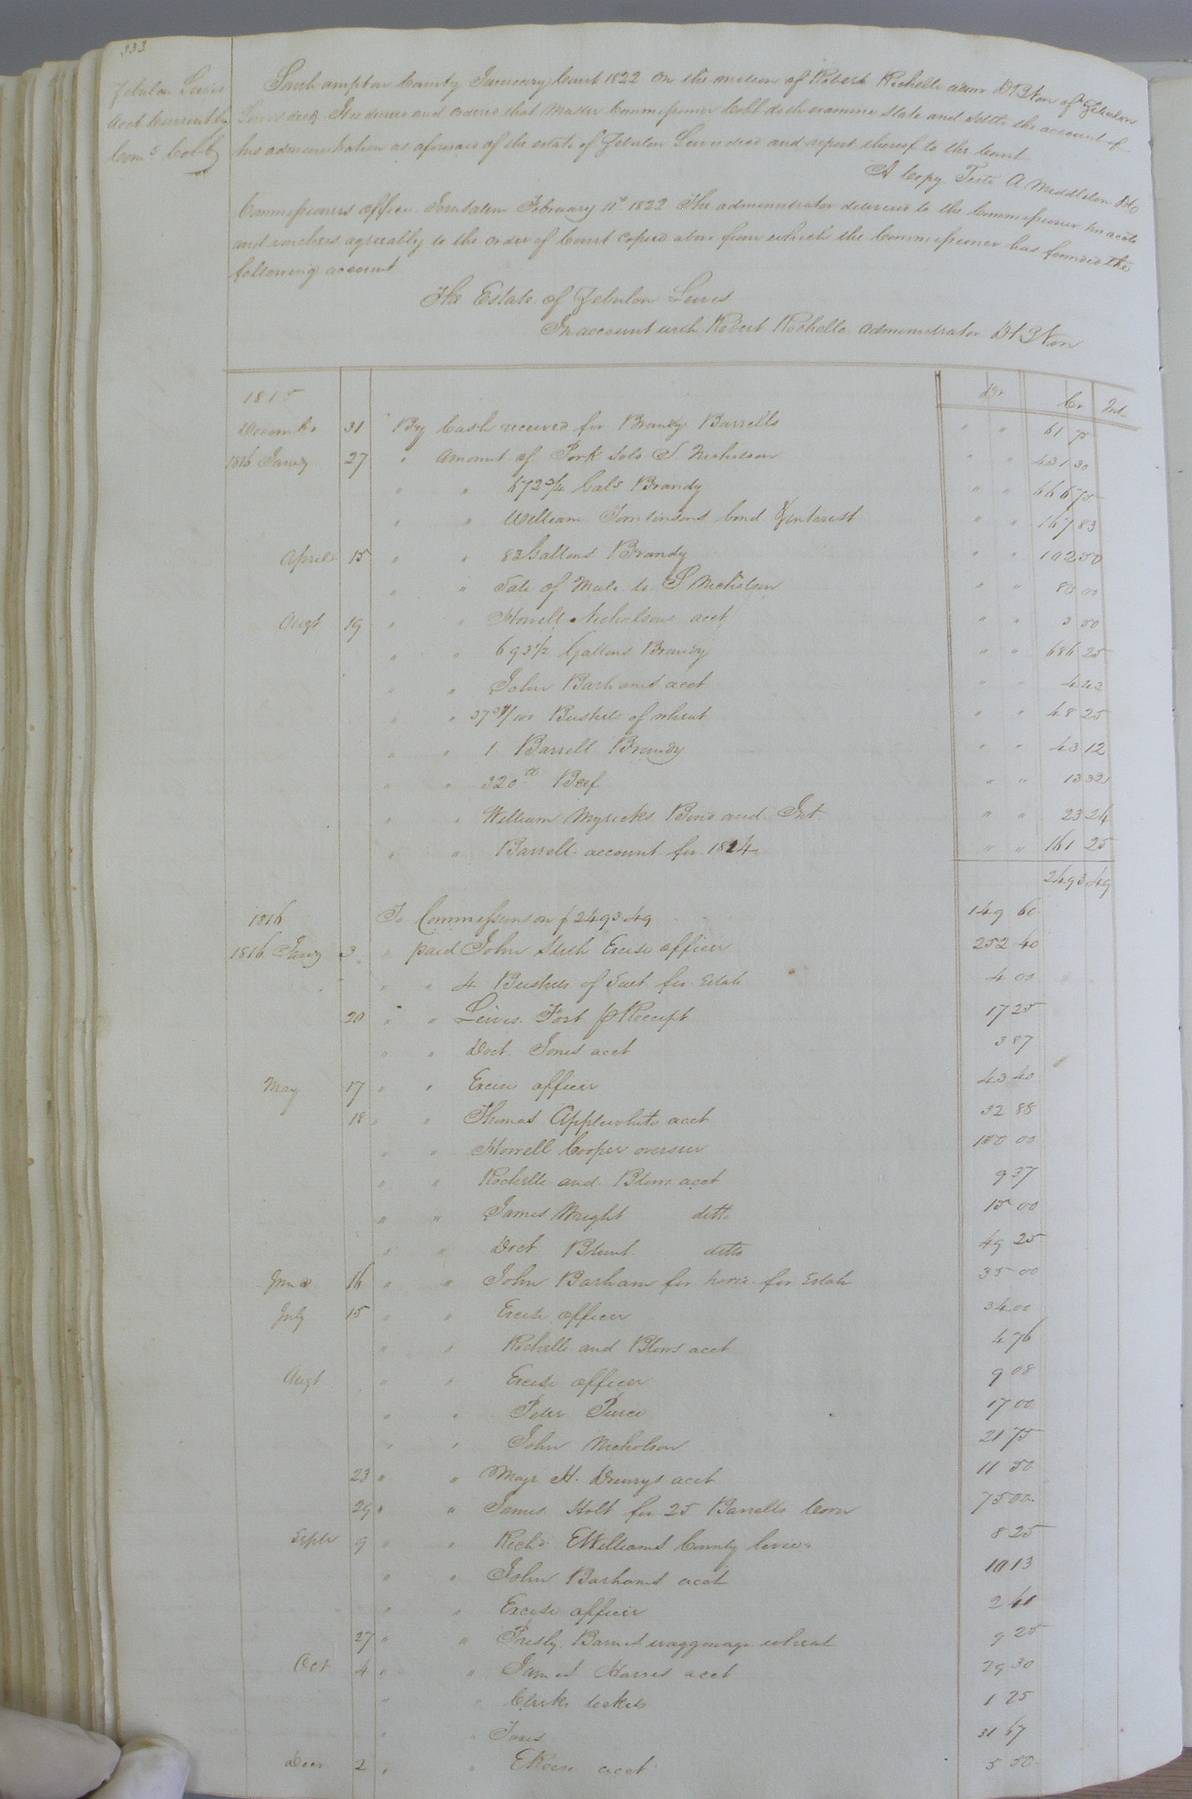 333
Zebulon Lewis
Acct Current by
Com.r Cobb
Southampton County January Court 1822 On the motion of Robert Rochelle adm.r DBNon of Zebulon
Lewis dec.d It is and ordered that Master Commissioner Cobb doth examine State and settle the account of
his administration as aforesaid of the estate of Zebulon Lewis dec.d and report thereof to the Court
A Copy Teste A Middleton DC
Commissioners office Jerusalem February 11th 1822 The administrator delivered to the Commissioner his accts
and vouchers agreeably to the order of Court copied above from which the Commissioner has formed the
following account
The Estate of Zebulon Lewis
In account with Robert Rochelle administrator DBNon
Dr Cr Int
1815
December 31 By Cash received for Brandy Barrells " " 61 75
1816 Jan.y 27 " Amount of Pork sold S Nicholson " " 431 30
" " 672 3/4 Gal.s Brandy " " 666 75
" " William Tomlinsons bond & Interest " " 167 83
April 15 " " 82 Gallons Brandy " " 102 50
" " Sale of Mule to S Nicholson " " 80 00
Augt 19 " " Howell Nicholsons acct " " 3 00
" " 693 1/2 Gallons Brandy " " 686 25
" " John Barhams acct " " 4 42
" " 37 /100 Bushels of wheat " " 48 25
" " 1 Barrell Brandy " " 43 12
" " 320 lb Beef " " 13 32
" " William Myricks Bond and Int " " 23 24
" " Barrell account for 1824 " " 161 25
2493 49
1816 To Commission on $2493 49 149 60
1816 Jan.y 3 " paid John Stith Excise officer 252 40
" " 4 Bushels of Salt for Estate 4 00
20 " " Lewis Fort p Receipt 17 25
" " Doct. Jones acct 3 87
May 17 " " Excise officer 43 40
18 " " Thomas Applewhite acct 32 88
" " Howell Cooper overseer 100 00
" " Rochelle and Blows acct 9 37
" " James Wright ditto 15 00
" " Doct Blunt ditto 49 25
June 16 " " John Barham for horse for Estate 35 00
July 15 " " Excise officer 34 00
" " Rochelle and Blows acct 4 76
Augt " " Excise officer 9 08
" " Peter Pierce 17 00
" " John Nicholson 21 75
23 " " Majr H. Drewrys acct 11 50
29 " " James Holt for 25 Barrells Corn 75 00
Septr 9 " " Richd E Williams County levies 8 25
" " John Barhams acct 10 13
" " Excise officer 2 40
27 " " Presly Barnes waggonage wheat 9 25
Oct 4 " " James Harris acct 29 30
" " Clerks tickets 1 25
" " Jones 31 67
Decr 2 " " E Reese acct 5 50